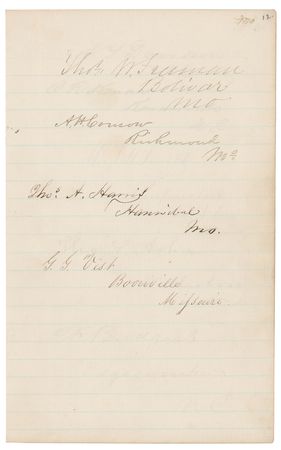 Mo 12
Thos. W. Freeman
Bolivar
Mo
A. H. Conrow
Richmond
Mo
Thos. A. Harris
Hannibal
Mo.
G. G. Vest
Boonville
Missouri